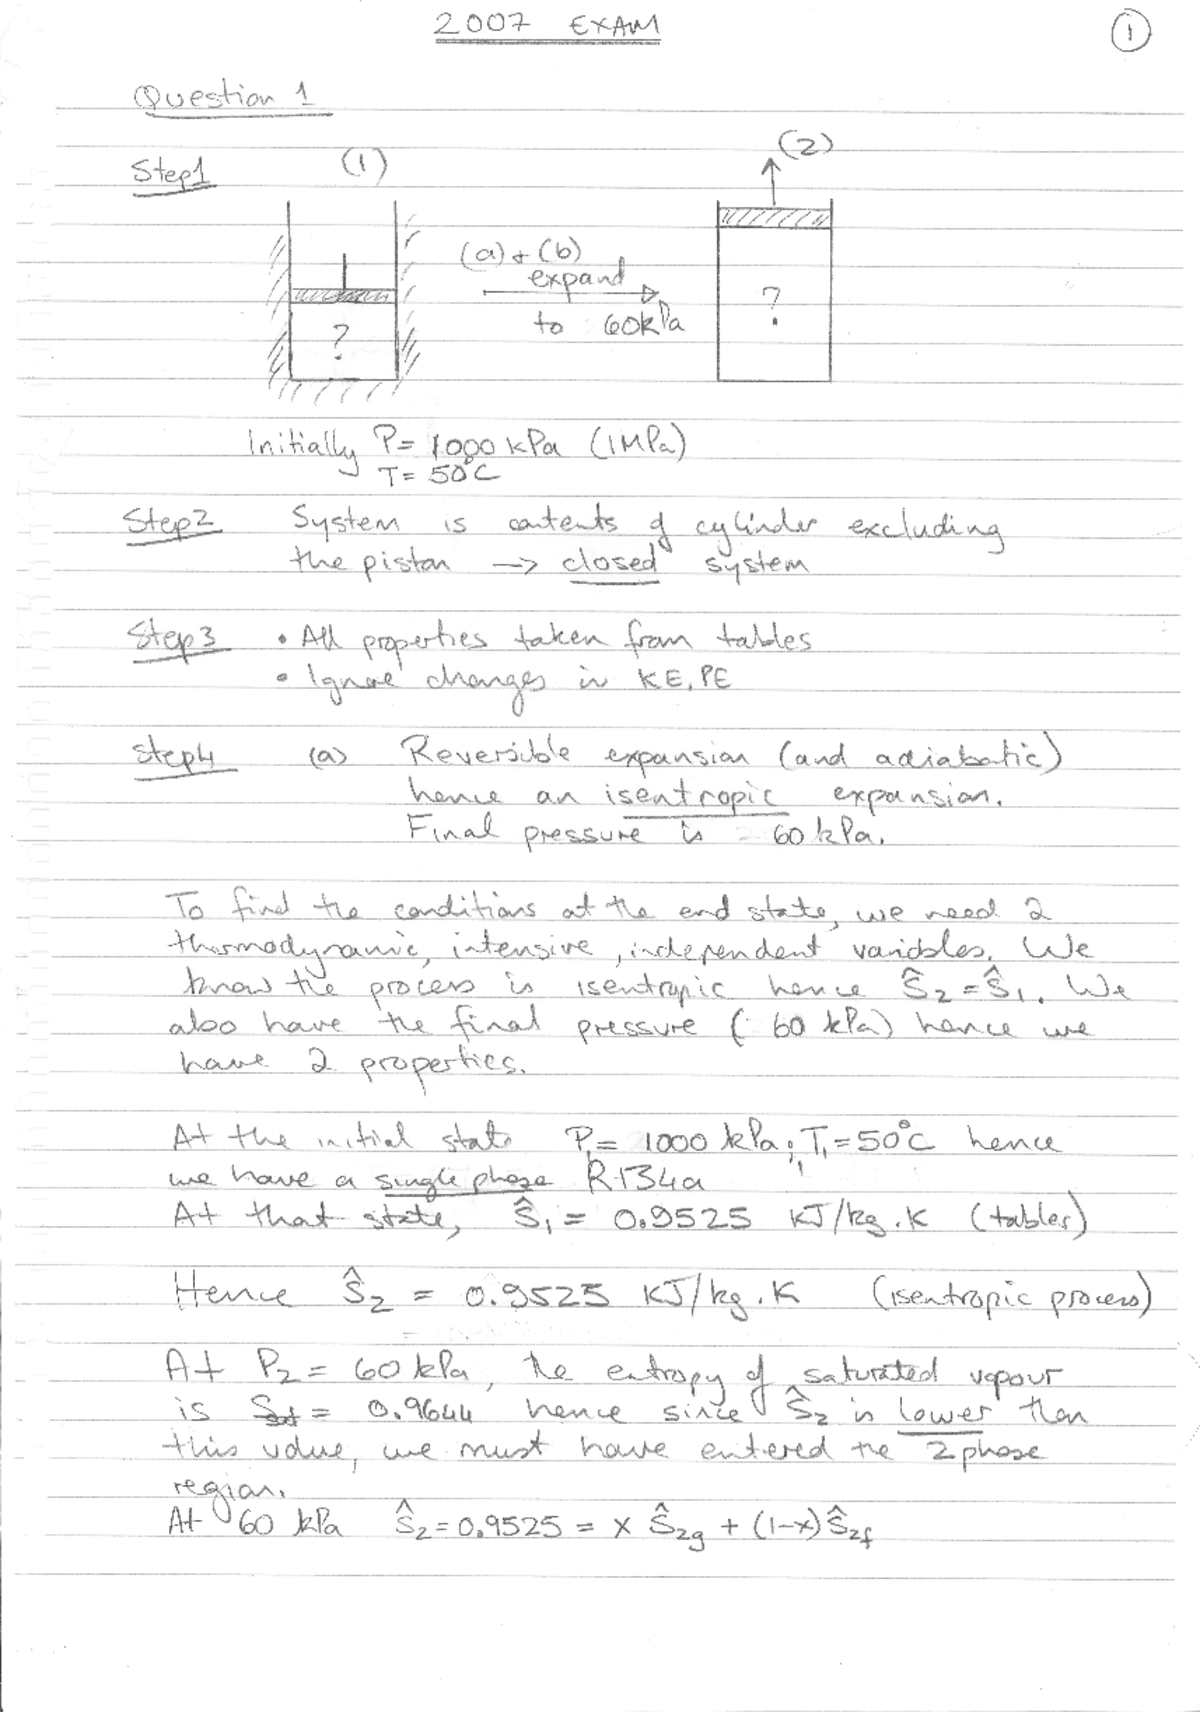 2007 EXAM
1
Question 1
Step1
(1)
(2)
(a) + (b)
expand
to 60kPa
?
?
Initially P= 1000 kPa (1MPa)
T= 50°C
Step2 System is contents of cylinder excluding
the piston → closed system
Step3 • All properties taken from tables
• Ignore changes in KE, PE
Step4 (a) Reversible expansion (and adiabatic)
hence an isentropic expansion.
Final pressure is 60 kPa.
To find the conditions at the end state, we need 2
thermodynamic, intensive, independent variables. We
know the process is isentropic hence Ŝ₂ = Ŝ₁. We
also have the final pressure (60 kPa) hence we
have 2 properties.
At the initial state P₁= 1000 kPa, T₁=50°C hence
we have a single phase R134a
At that state, Ŝ₁ = 0.9525 kJ/kg.K (tables)
Hence Ŝ₂ = 0.9525 kJ/kg.K (isentropic process)
At P₂ = 60 kPa, the entropy of saturated vapour
is = 0.9644 hence since Ŝ₂ is lower than
this value, we must have entered the 2phase
region.
At 60 kPa Ŝ₂=0.9525 = x Ŝ₂g + (1-x) Ŝ₂f